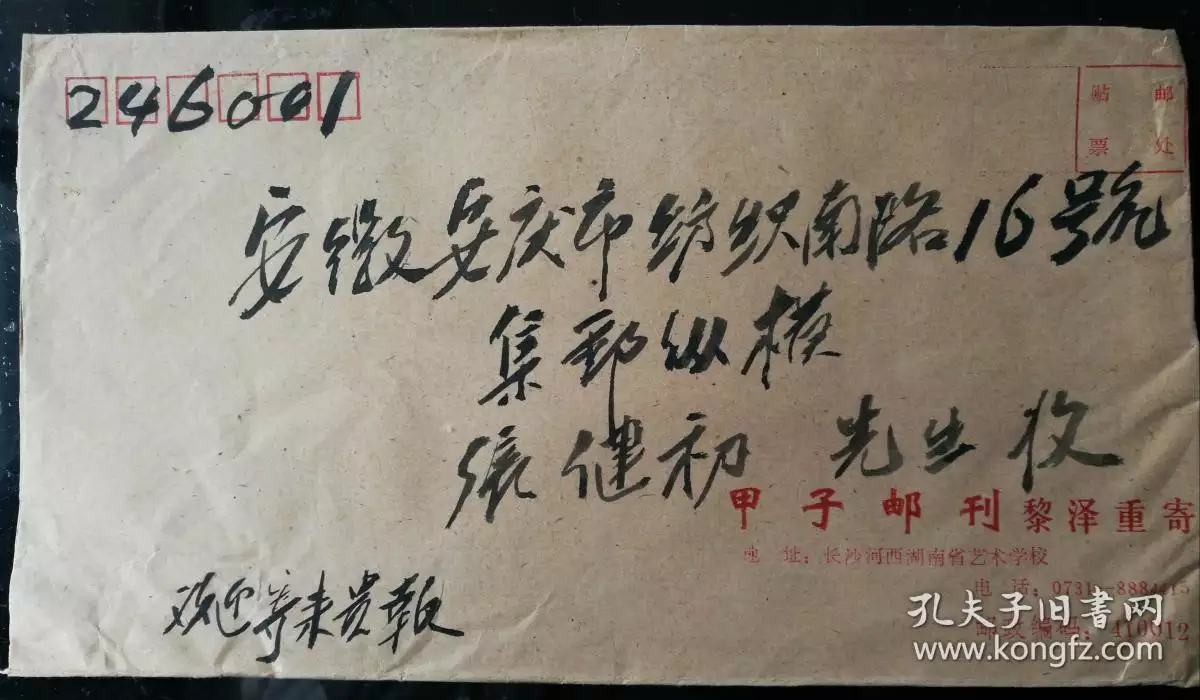 246001
贴 邮
票 处
安徽安庆市纺织南路16号
集邮纵横
张健初 先生收
甲子邮刊 黎泽重寄
地 址：长沙河西湖南省艺术学校
电 话：0731-888
邮政编码：410012
欢迎寄来贵報
孔夫子旧书网
www.kongfz.com